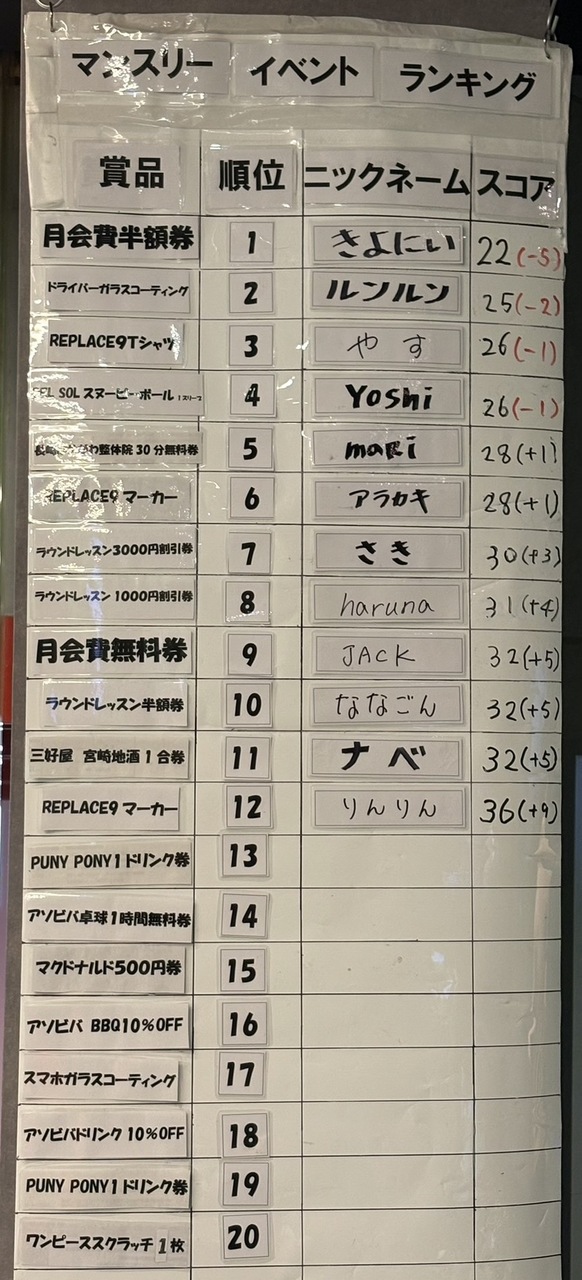 マンスリー イベント ランキング
賞品 順位 ニックネーム スコア
月会費半額券 1 きよにい 22(-5)
ドライバーガラスコーティング 2 ルンルン 25(-2)
REPLACE9Tシャツ 3 やす 26(-1)
SOL スヌーピーボール 4 Yoshi 26(-1)
整体院 30分無料券 5 maRi 28(+1)
REPLACE9 マーカー 6 アラカキ 28(+1)
ラウンドレッスン3000円割引券 7 さき 30(+3)
ラウンドレッスン 1000円割引券 8 haruna 31(+4)
月会費無料券 9 JACK 32(+5)
ラウンドレッスン半額券 10 ななごん 32(+5)
三好屋 宮崎地酒1合券 11 ナベ 32(+5)
REPLACE9 マーカー 12 りんりん 36(+9)
PUNY PONY1ドリンク券 13
アソビバ卓球1時間無料券 14
マクドナルド500円券 15
アソビバ BBQ10%OFF 16
スマホガラスコーティング 17
アソビバドリンク 10%OFF 18
PUNY PONY1ドリンク券 19
ワンピーススクラッチ 1枚 20